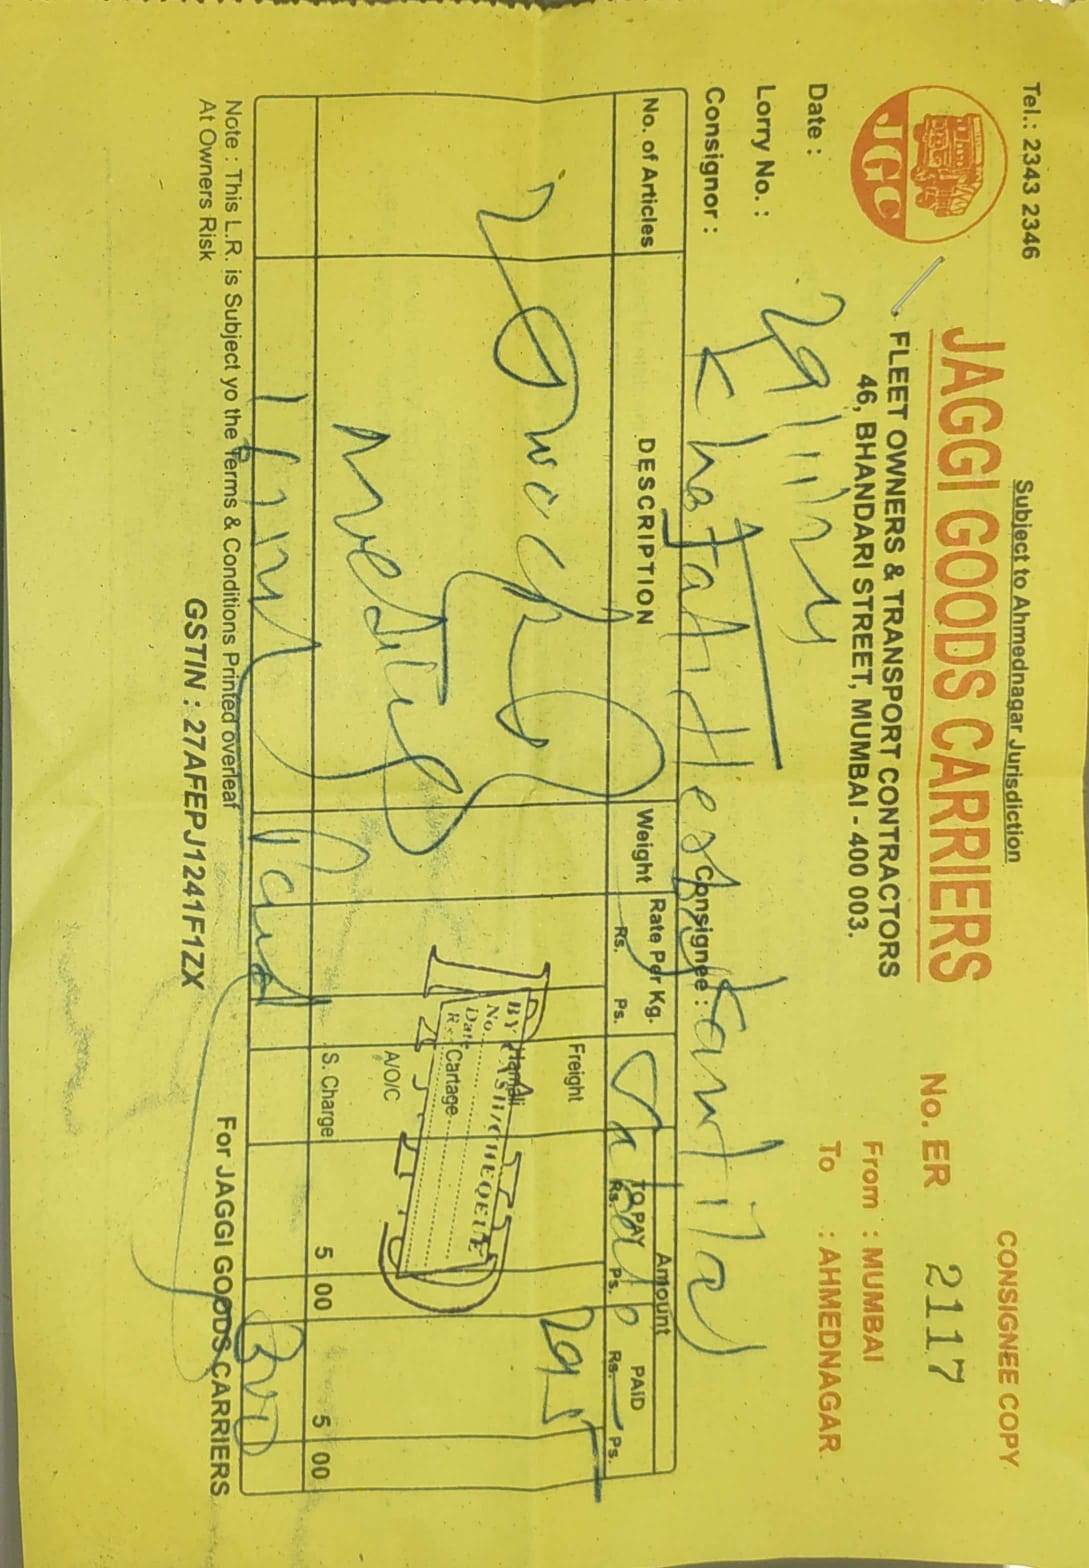 Subject to Ahmednagar Jurisdiction
CONSIGNEE COPY
Tel.: 2343 2346
JAGGI GOODS CARRIERS
JGC
FLEET OWNERS & TRANSPORT CONTRACTORS
46, BHANDARI STREET, MUMBAI - 400 003.
No. ER 2117
From : MUMBAI
To : AHMEDNAGAR
Date :
Lorry No. :
Consignor : Consignee : Kantilal
No. of Articles DESCRIPTION Weight Rate Per Kg. Amount
Rs. Ps. TO PAY Rs. Ps. PAID Rs. Ps.
2
Freight 295
Hamali
BY CASH/CHEQEUE
No.
Cartage
A/O/C
S. Charge 5 00 5 00
300
Note : This L.R. is Subject yo the Terms & Conditions Printed overleaf
At Owners Risk
GSTIN : 27AFEPJ1241F1ZX
For JAGGI GOODS CARRIERS